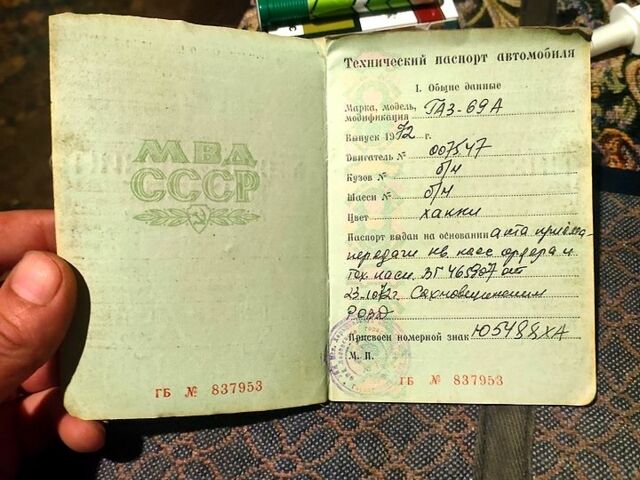 МВД
СССР
ГБ № 837953
Технический паспорт автомобиля
I. Общие данные
Марка, модель,
модификация ГАЗ-69А
Выпуск 1972 г.
Двигатель № 007547
Кузов № б/н
Шасси № б/н
Цвет хакки
Паспорт выдан на основании акта приёма-
передачи кв. касс ордера и
тех паси ВГ 465907 от
23.10.72г
РОВД
Присвоен номерной знак Ю5488ХА
М. П.
ГБ № 837953